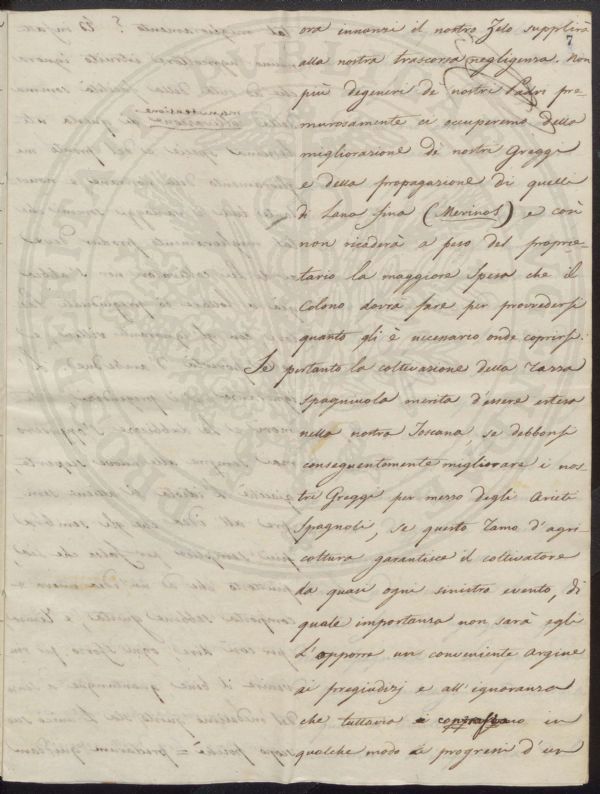 7
ora innanzi il nostro Zelo supplirà
alla nostra trascorsa negligenza. Non
più degeneri de' nostri Padri pre-
murosamente ci occuperemo della
migliorazione de' nostri Greggi
e della propagazione di quelli
di Lana fina (Merinos) e così
non ricaderà a peso del proprie-
tario la maggiore spesa che il
Colono dovrà fare per provvedersi
quanto gli è necessario onde coprirsi.
Se pertanto la coltivazione della razza
spagnuola merita d'essere estesa
nella nostra Toscana, se debbonsi
conseguentemente migliorare i nos-
tri Greggi per mezzo degli Arieti
Spagnoli, se questo ramo d'agri-
coltura garantisce il coltivatore
da quasi ogni sinistro evento, di
quale importanza non sarà egli
l'opporre un conveniente argine
ai pregiudizj e all'ignoranza
che tuttavia in
qualche modo i progressi d'un